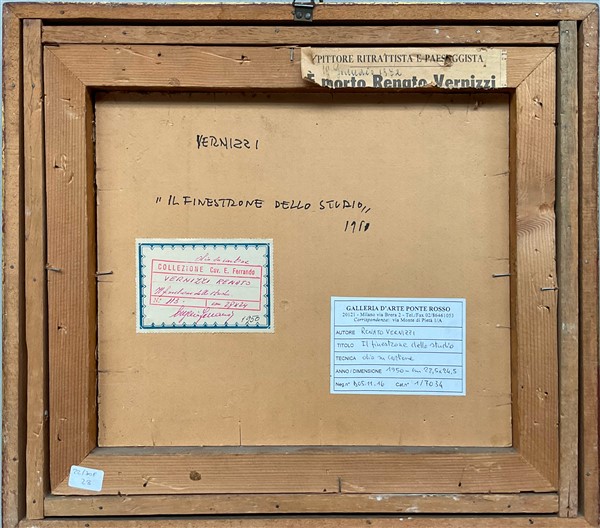 PITTORE RITRATTISTA E PAESAGGISTA
È morto Renato Vernizzi
VERNIZZI
"IL FINESTRONE DELLO STUDIO"
olio su cartone
COLLEZIONE Cav. E. Ferrando
VERNIZZI RENATO
Il finestrone dello studio
N.° 113 - cm 27x24
1950
GALLERIA D'ARTE PONTE ROSSO
20121 - Milano via Brera 2 - Tel./Fax 02/86461053
Corrispondenza: via Monte di Pietà 1/A
AUTORE RENATO VERNIZZI
TITOLO Il finestrone dello studio
TECNICA olio su cartone
ANNO / DIMENSIONE 1950 - cm. 27,5x24,5
Neg n° B05.11.16 Cat n° 1/7034